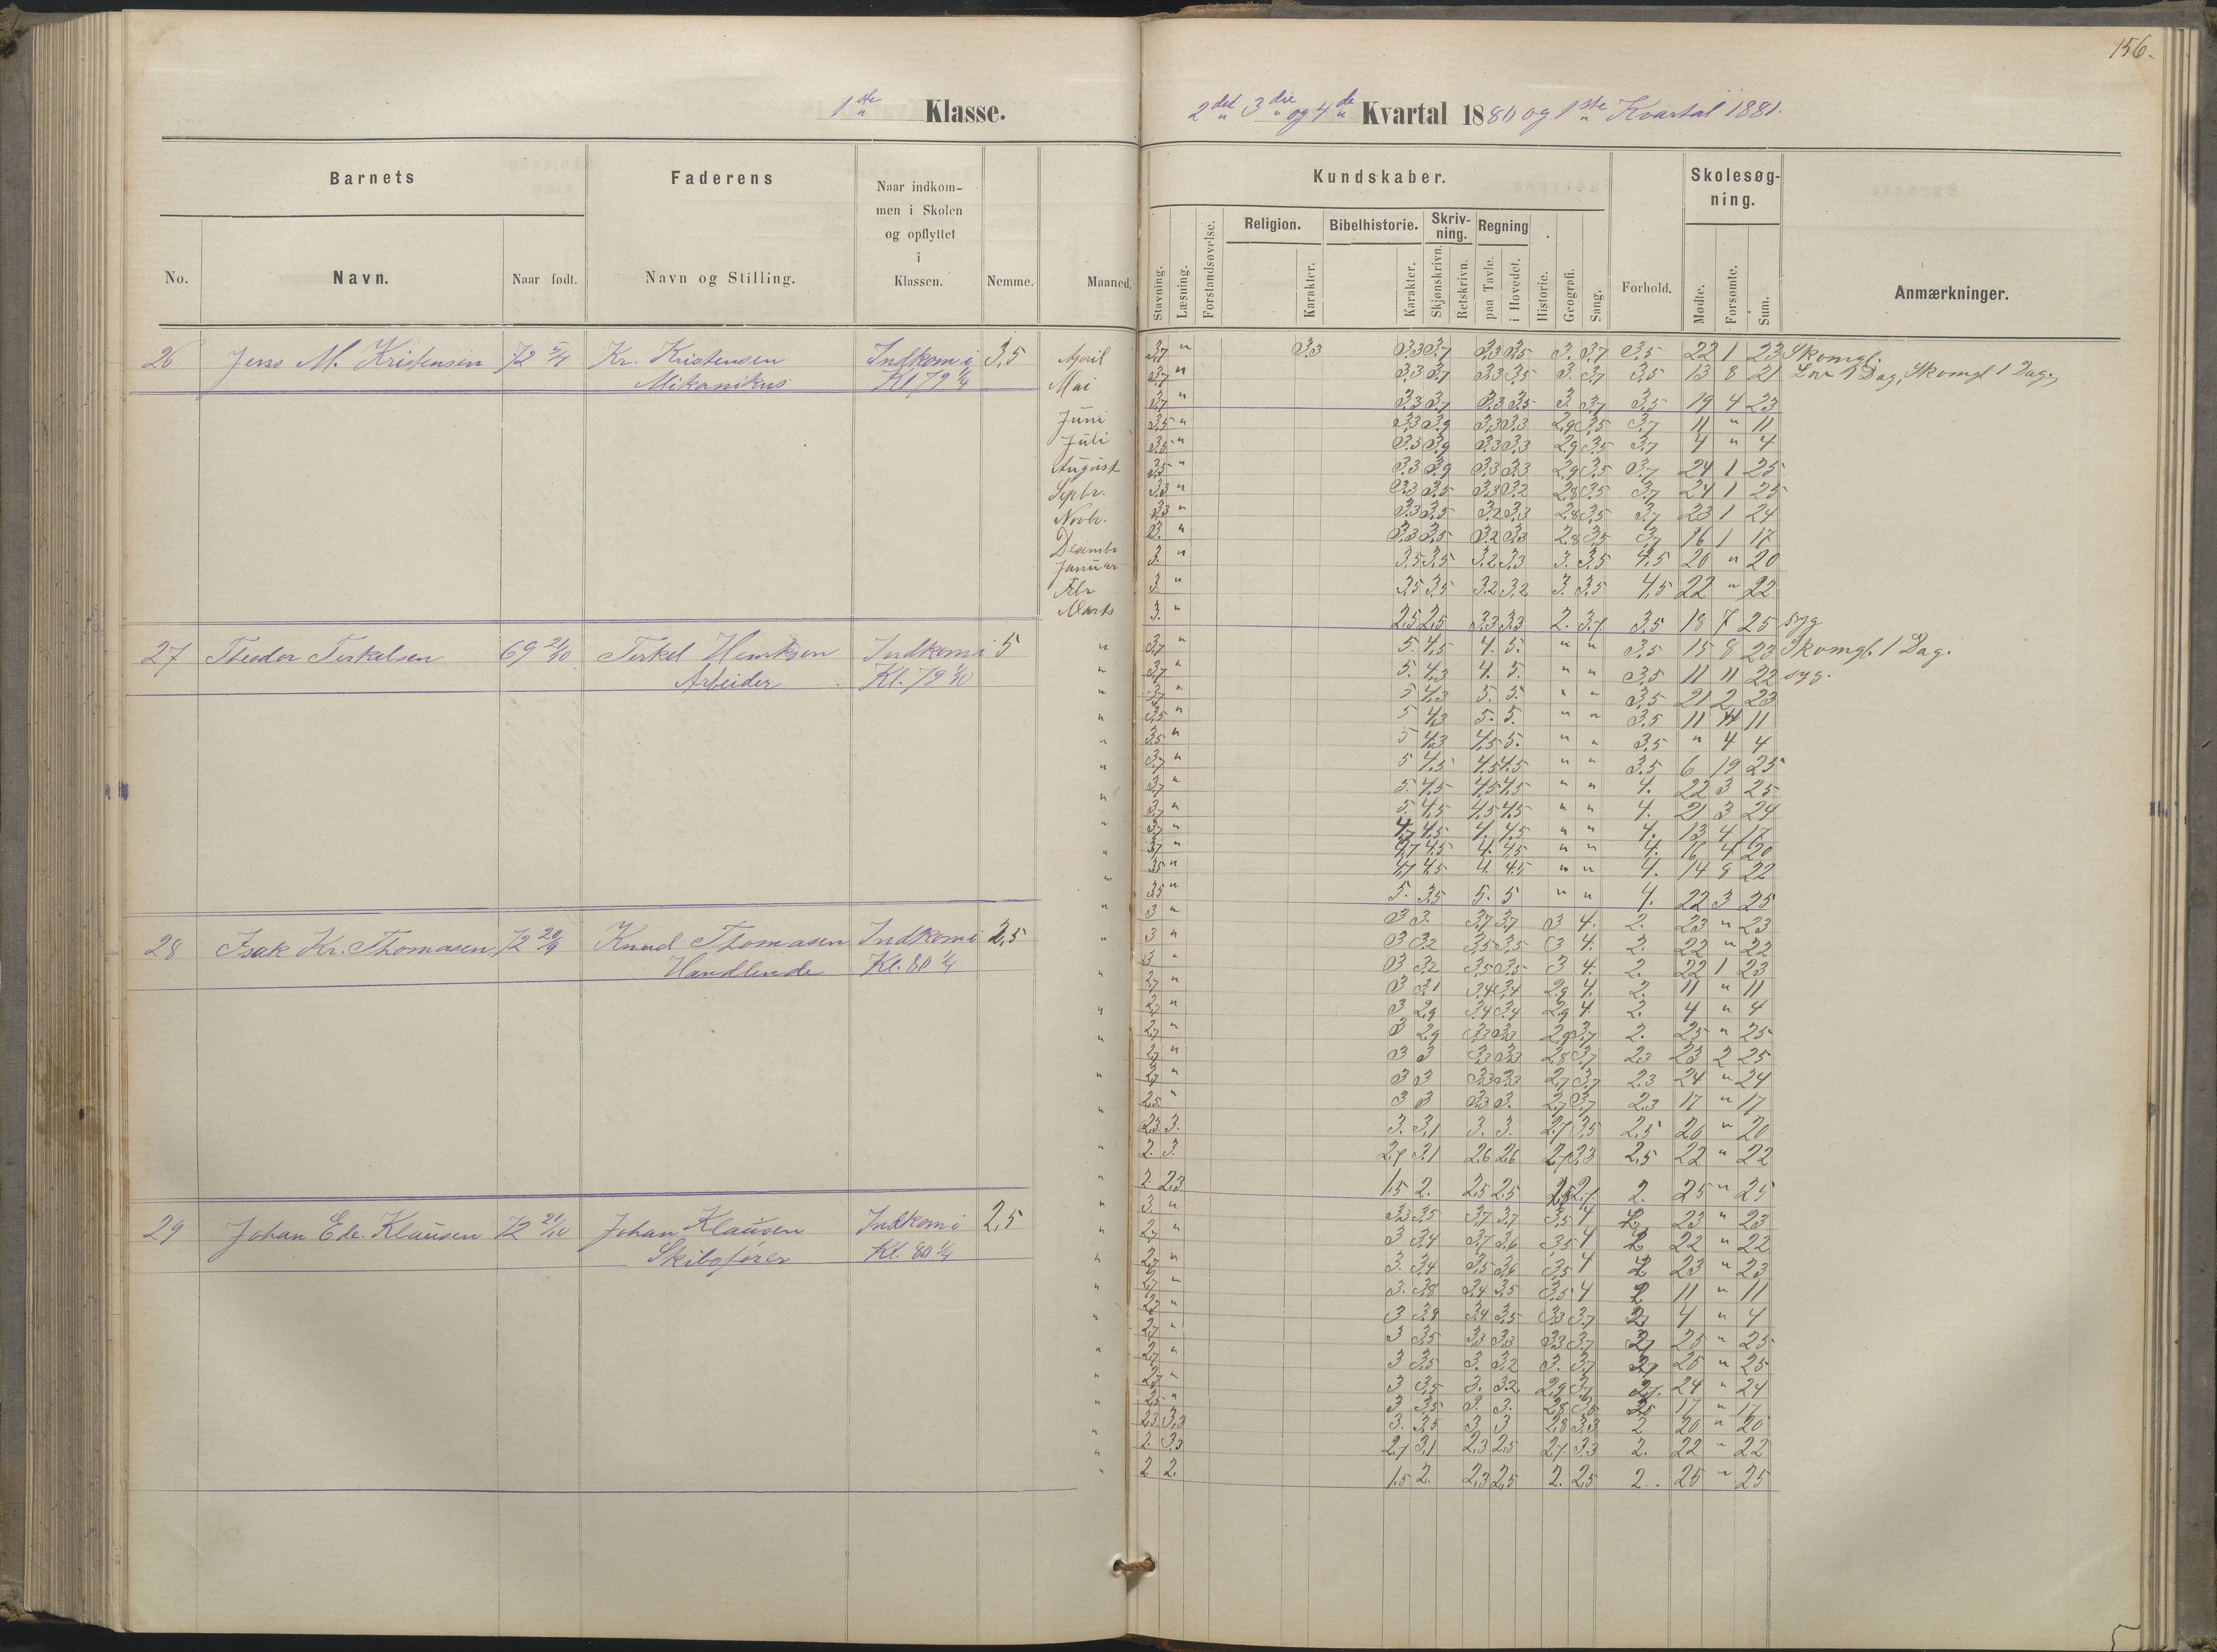 156.
1ste Klasse.
2det 3die og 4de Kvartal 1880 og 1ste Kvartal 1881.
Barnets
Faderens
Naar indkom-
men i Skolen
og opflyttet
i
Klassen.
No.
Navn.
Naar født.
Navn og Stilling.
Nemme.
Maaned.
Kundskaber.
Skolesøg-
ning.
Religion.
Bibelhistorie.
Skriv-
ning.
Regning
Stavning.
Læsning.
Forstandsøvelse.
Karakter.
Karakter.
Skjønskrivn.
Retskrivn.
paa Tavle.
i Hovedet.
Historie.
Geografi.
Sang.
Forhold.
Mødte.
Forsømte.
Sum.
Anmærkninger.
26 Jens M. Kristensen 72 5/4 Kr. Kristensen Indkom i 3,5
Mikanikus Kl 79 1/4
April 3,7 " 3,3 3,3 3,7 3,3 3,5 3. 3,7 3,5 22 1 23 Skomgl.
Mai 3,7 " 3,3 3,7 3,3 3,5 3. 3,7 3,5 13 8 21 1 Dag, Skomgl 1 Dag.
3,7 " 3,3 3,7 3,3 3,5 3. 3,7 3,5 19 4 23
Juni 3,5 " 3,3 3,9 3,3 3,3 2,9 3,5 3,7 11 " 11
Juli 3,5 " 3,3 3,9 3,3 3,3 2,9 3,5 3,7 4 " 4
August 3,5 " 3,3 3,9 3,3 3,3 2,9 3,5 3,7 24 1 25
Septr. 3,3 " 3,3 3,5 3,3 3,2 2,8 3,5 3,7 24 1 25
Novbr. 3,3 " 3,3 3,5 3,2 3,3 2,8 3,5 3,7 23 1 24
Decembr 3. " 3,3 3,5 3,2 3,3 2,8 3,5 3,7 16 1 17
Januar 3. " 3,5 3,5 3,2 3,3 3. 3,5 4,5 20 " 20
Febr 3 " 3,5 3,5 3,2 3,2 3. 3,5 4,5 22 " 22
Marts 3. " 2,5 2,5 3,3 3,3 2. 3,7 3,5 18 7 25 syg
27 Theodor Terkelsen 69 21/10 Terkel Henriksen Indkom i 5
Arbeider Kl. 79 1/10
" 3,7 " 5. 4,5 4. 5. " " 3,5 15 8 23 Skomgl. 1 Dag.
" 3,7 " 5. 4,3 4. 5. " " 3,5 11 11 22 syg.
" 3,7 " 5 4,3 5. 5. " " 3,5 21 2 23
" 3,5 " 5 4,3 5. 5. " " 3,5 11 11
" 3,5 " 5 4,3 4,5 5. " " 3,5 " 4 4
" 3,7 " 5 4,5 4,5 4,5 " " 3,5 6 19 25
" 3,7 " 5. 4,5 4,5 4,5 " " 4. 22 3 25
" 3,7 " 5. 4,5 4,5 4,5 " " 4. 21 3 24
" 3,7 " 4,7 4,5 4. 4,5 " " 4. 13 4 17
" 3,7 " 4,7 4,5 4. 4,5 " " 4. 16 4 20
" 3,5 " 4,7 4,5 4. 4,5 " " 4. 14 8 22
" 3,5 " 5. 3,5 5. 5 " " 4. 22 3 25
28 Isak Kr. Thomasen 72 20/9 Knud Thomasen Indkom i 2,5
Handlende Kl. 80 1/4
3 " 3 3. 3,7 3,7 3 4. 2. 23 " 23
3 " 3 3,2 3,5 3,5 3 4. 2. 22 " 22
3 " 3 3,2 3,5 3,5 3 4. 2. 22 1 23
2,7 " 3 3,1 3,4 3,4 2,9 4. 2. 11 " 11
2,7 " 3 2,9 3,4 3,4 2,9 4. 2. 4 " 4
2,7 " 3 2,9 3,3 3,3 2,9 3,7 2. 25 " 25
2,7 " 3 3 3,3 3,3 2,8 3,7 2,3 23 2 25
2,7 " 3 3 3,3 3,3 2,7 3,7 2,3 24 " 24
2,5 " 3 3 3,3 3. 2,7 3,7 2,3 17 " 17
2,3 3. 3. 3,1 3. 3. 2,7 3,5 2,5 20 " 20
2. 3. 2,7 3,1 2,6 2,6 2,7 3,3 2,5 22 " 22
2. 2,3 1,5 2. 2,5 2,5 2,7 2. 25 " 25
29 Johan Ede. Klausen 72 21/10 Johan Klausen Indkom i 2,5
Skibsfører Kl. 80 1/4
3 " 3,3 3,5 3,7 3,7 3,5 4 2 23 " 23
2,7 " 3 3,4 3,7 3,6 3,5 4 2 22 " 22
2,7 " 3. 3,4 3,5 3,6 3,5 4 2 23 " 23
2,7 " 3. 3,8 3,4 3,5 3,5 4 2 11 " 11
2,7 " 3 3,8 3,4 3,5 3,3 3,7 2 4 " 4
2,7 " 3 3,5 3,3 3,3 3,3 3,7 25 " 25
2,7 " 3 3,5 3. 3,2 3. 3,7 25 " 25
2,7 " 3 3,5 3. 3,2 2,9 3,7 2,7. 24 " 24
2,5 " 3 3,5 3. 3. 2,8 17 " 17
2,3 3,3 3. 3,5 3 3 2,8 3,3 2 20 " 20
2. 3,3 2,7 3,1 2,3 2,5 2,7. 3,3 2. 22 " 22
2. 2. 1,5 2. 2,3 2,5 2. 2,5 2.. 25 " 25